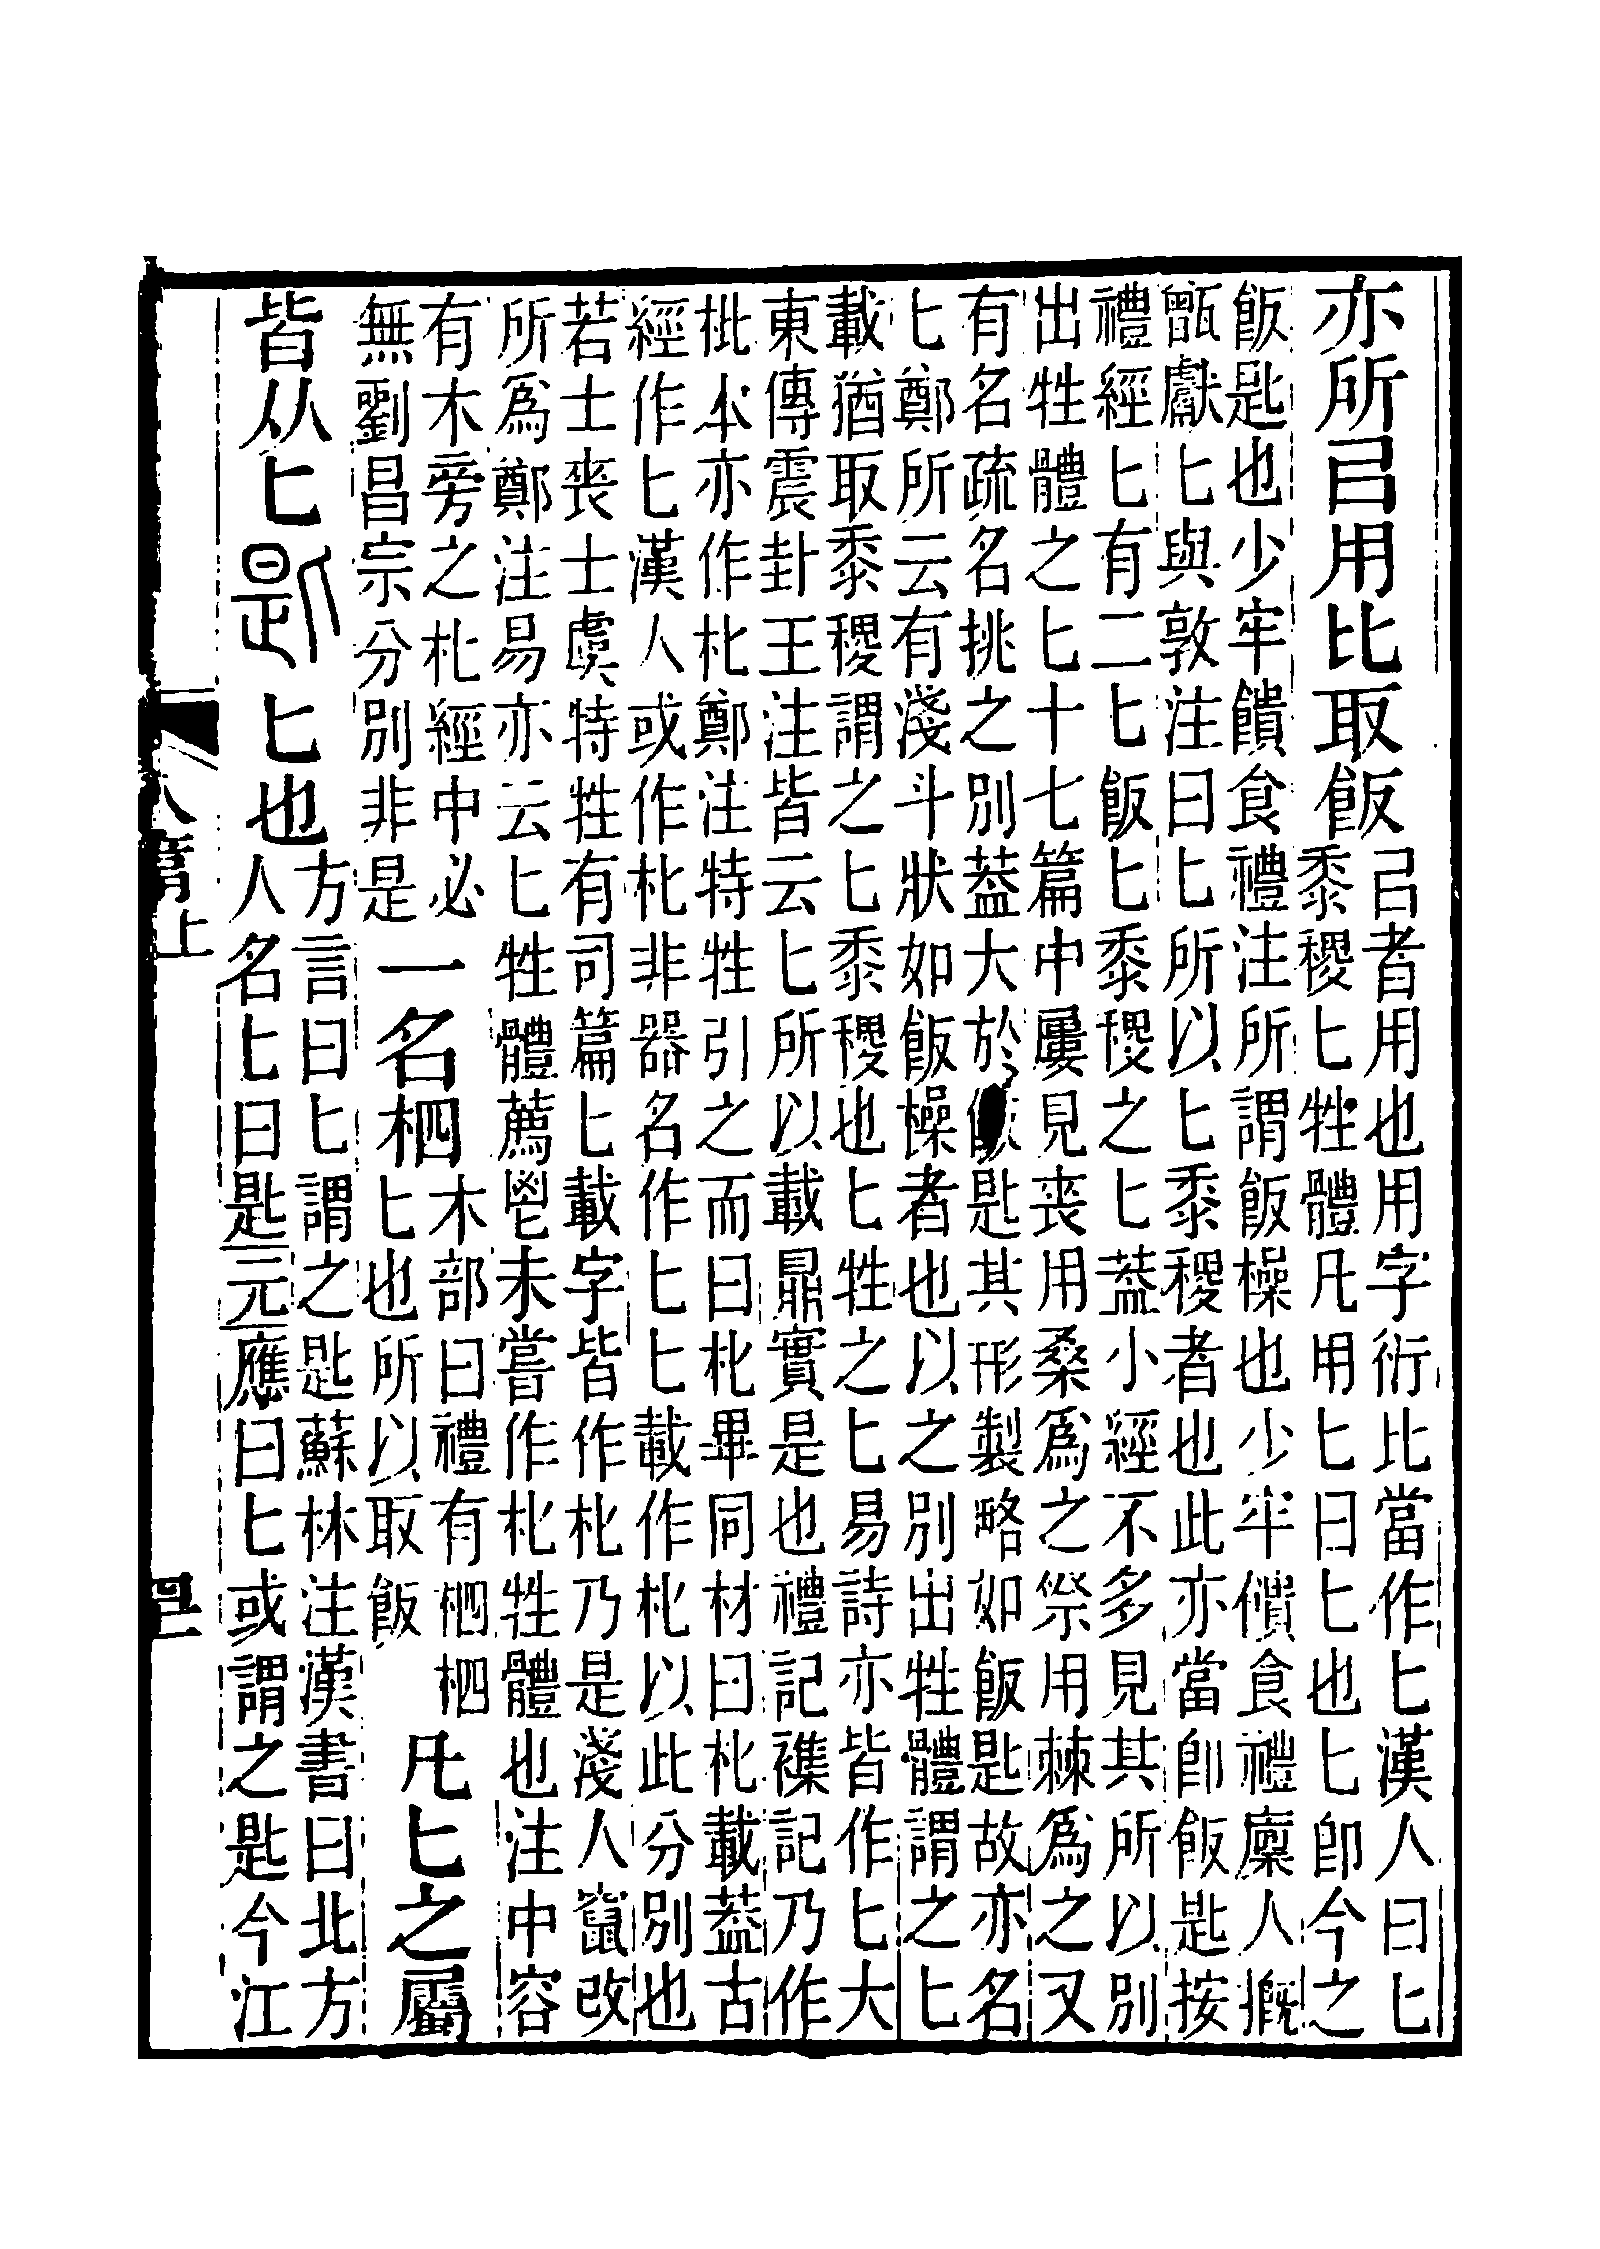 亦所㠯用比取飯
㠯者用也用字衍比當作匕漢人曰匕
黍稷匕牲體凡用匕曰匕也匕卽今之
飯匙也少牢饋食禮注所謂飯橾也少牢饋食禮廩人摡
甑獻匕與敦注曰匕所以匕黍稷者也此亦當卽飯匙按
禮經匕有二匕飯匕黍稷之匕葢小經不多見其所以別
出牲體之匕十七篇中屢見喪用桑爲之祭用棘爲之又
有名疏名挑之別葢大於飯匙其形製略如飯匙故亦名
匕鄭所云有淺斗狀如飯橾者也以之別出牲體謂之匕
載猶取黍稷謂之匕黍稷也匕牲之匕易詩亦皆作匕大
東傳震卦王注皆云匕所以載鼎實是也禮記襍記乃作
枇本亦作朼鄭注特牲引之而曰朼畢同材曰朼載葢古
經作匕漢人或作朼非器名作匕匕載作朼以此分別也
若士喪士虞特牲有司篇匕載字皆作朼乃是淺人竄改
所爲鄭注易亦云匕牲體薦鬯未嘗作朼牲體也注中容
有木旁之朼經中必
無劉昌宗分別非是
一名柶
木部曰禮有柶柶
匕也所以取飯
凡匕之屬
皆从匕
匙匕也
方言曰匕謂之匙蘇林注漢書曰北方
人名匕曰匙元應曰匕或謂之匙今江
八篇上